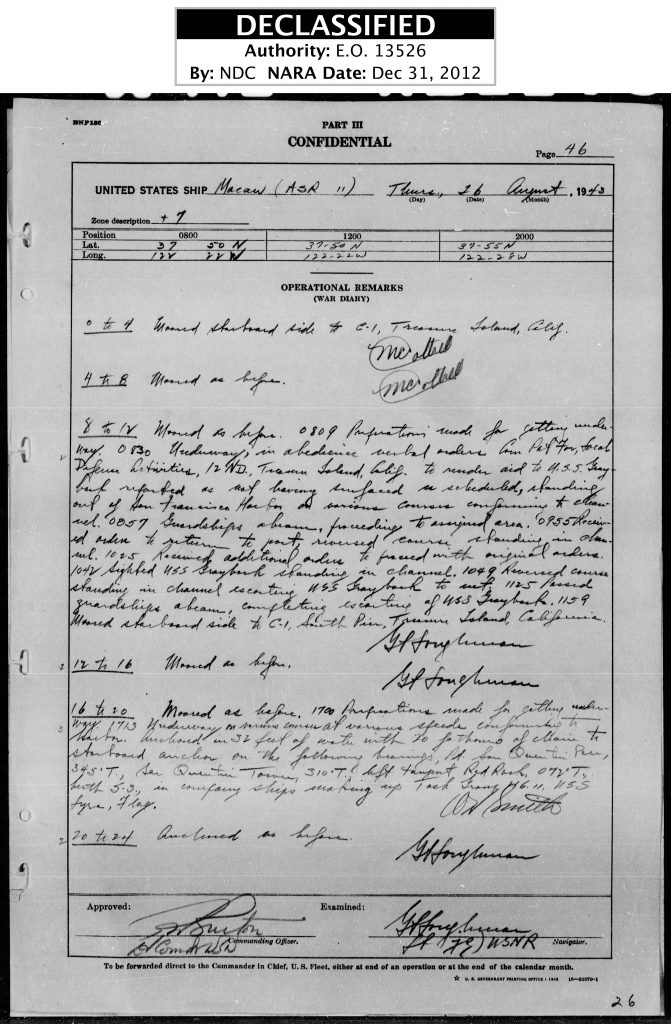 DECLASSIFIED
Authority: E.O. 13526
By: NDC NARA Date: Dec 31, 2012
BNP 136
PART III
CONFIDENTIAL
Page 46
UNITED STATES SHIP Macaw (ASR 11) Thurs, 26 August, 1943
(Day) (Date) (Month)
Zone description + 7
Position 0800 1200 2000
Lat. 37 50 N 37-50 N 37-55 N
Long. 122 22 W 122-22 W 122-28 W
OPERATIONAL REMARKS
(WAR DIARY)
0 to 4 Moored starboard side to C-1, Treasure Island, Calif.
4 to 8 Moored as before.
8 to 12 Moored as before. 0809 Preparations made for getting under-
way. 0830 Underway, in obedience verbal orders Com Pat For, Local
Defense Activities, 12 ND. Treasure Island, Calif. to render aid to U.S.S. Gray-
back reported as not having surfaced as scheduled, standing
out of San Francisco Harbor on various courses conforming to chan-
nel. 0857 Guardships abeam, proceeding to assigned area. 0955 Receiv-
ed orders to return to port, reversed course, standing in chan-
nel. 1025 Received additional orders to proceed with original orders.
1042 Sighted USS Grayback standing in channel. 1049 Reversed course
standing in channel escorting USS Grayback to 1125 Passed
guardships abeam, completing escorting of USS Grayback. 1159
Moored starboard side to C-1, South Pier, Treasure Island, California.
12 to 16 Moored as before.
16 to 20 Moored as before. 1700 Preparations made for getting under-
way 1713 Underway on various courses at various speeds conforming to
harbor. Anchored in 32 feet of water with 20 fathoms of chain to
starboard anchor on the following bearings, Pt. San Quentin Pier,
345°T, San Quentin Tower, 310°T, left tangent Red Rock, 072°T,
in company ships making up Task Group 16.11, USS
Lyra, Flag.
20 to 24 Anchored as before.
Approved: Examined:
Commanding Officer. Lt (jg) USNR Navigator.
To be forwarded direct to the Commander in Chief, U. S. Fleet, either at end of an operation or at the end of the calendar month.
☆ U. S. GOVERNMENT PRINTING OFFICE
26